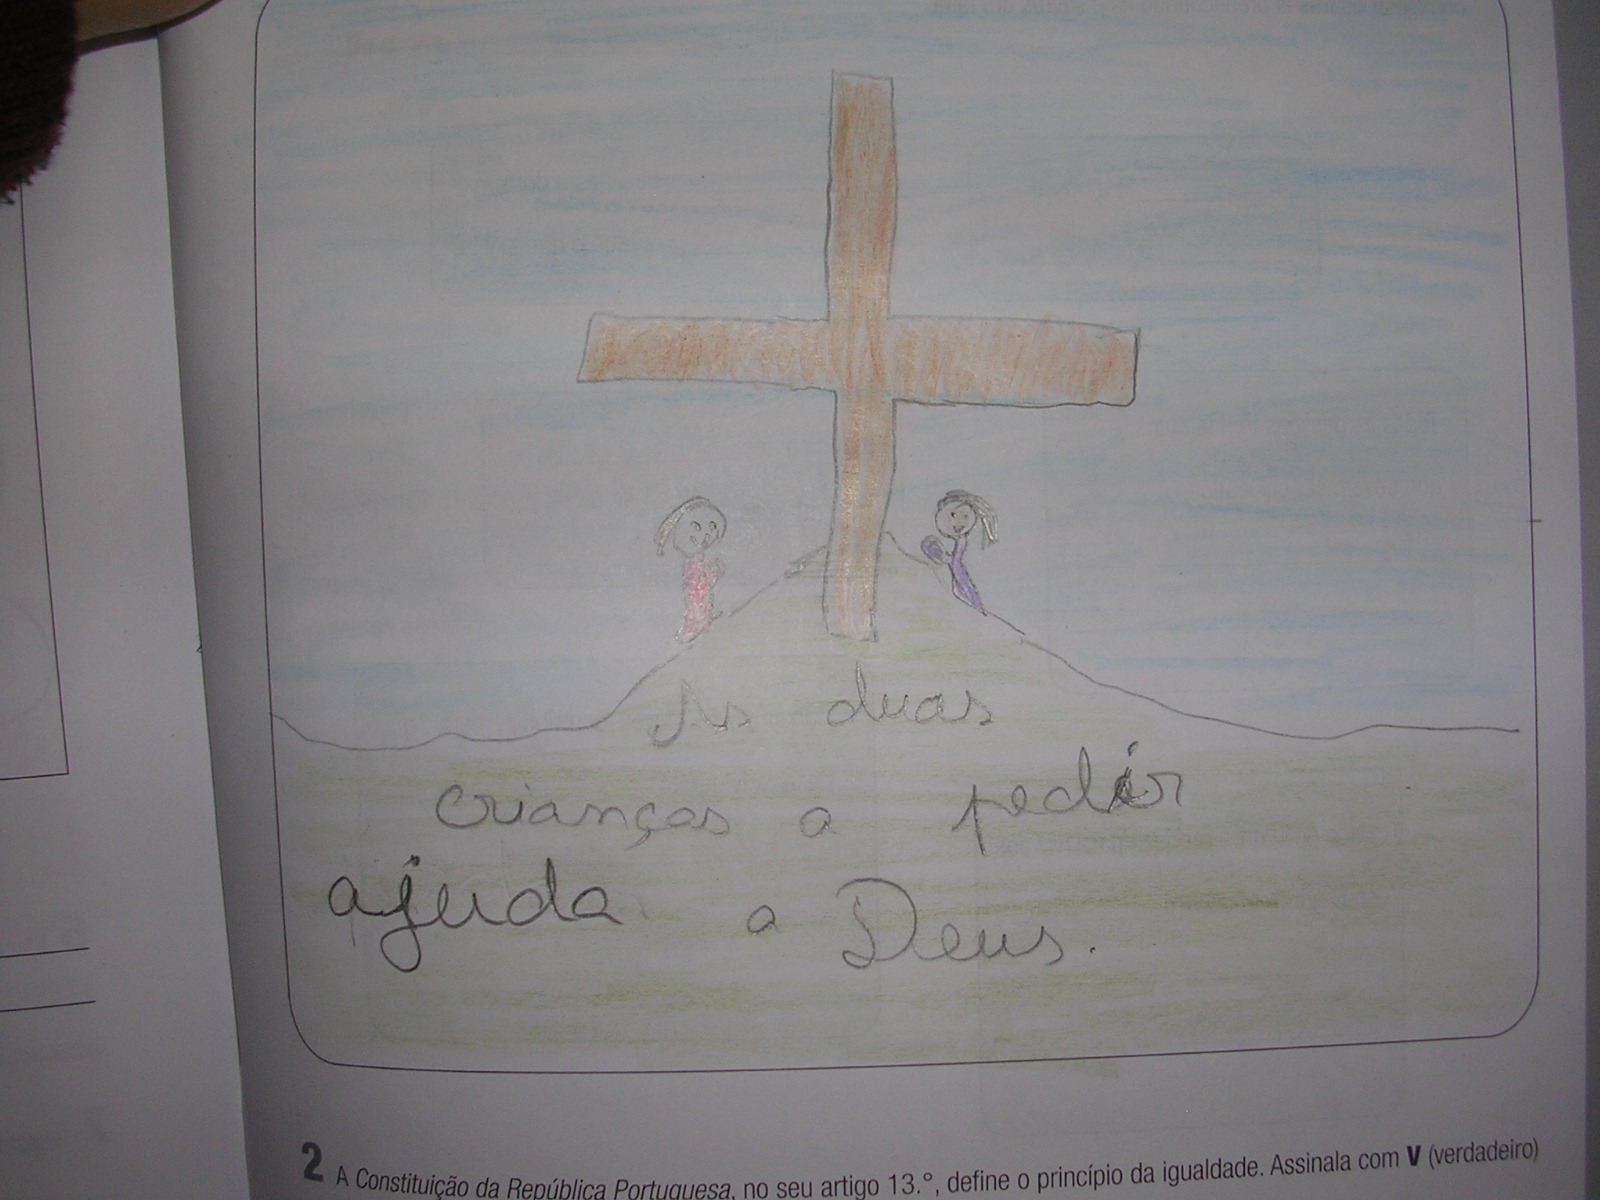 As duas
crianças a pedir
ajuda a Deus.
2 A Constituição da República Portuguesa, no seu artigo 13.º, define o princípio da igualdade. Assinala com V (verdadeiro)